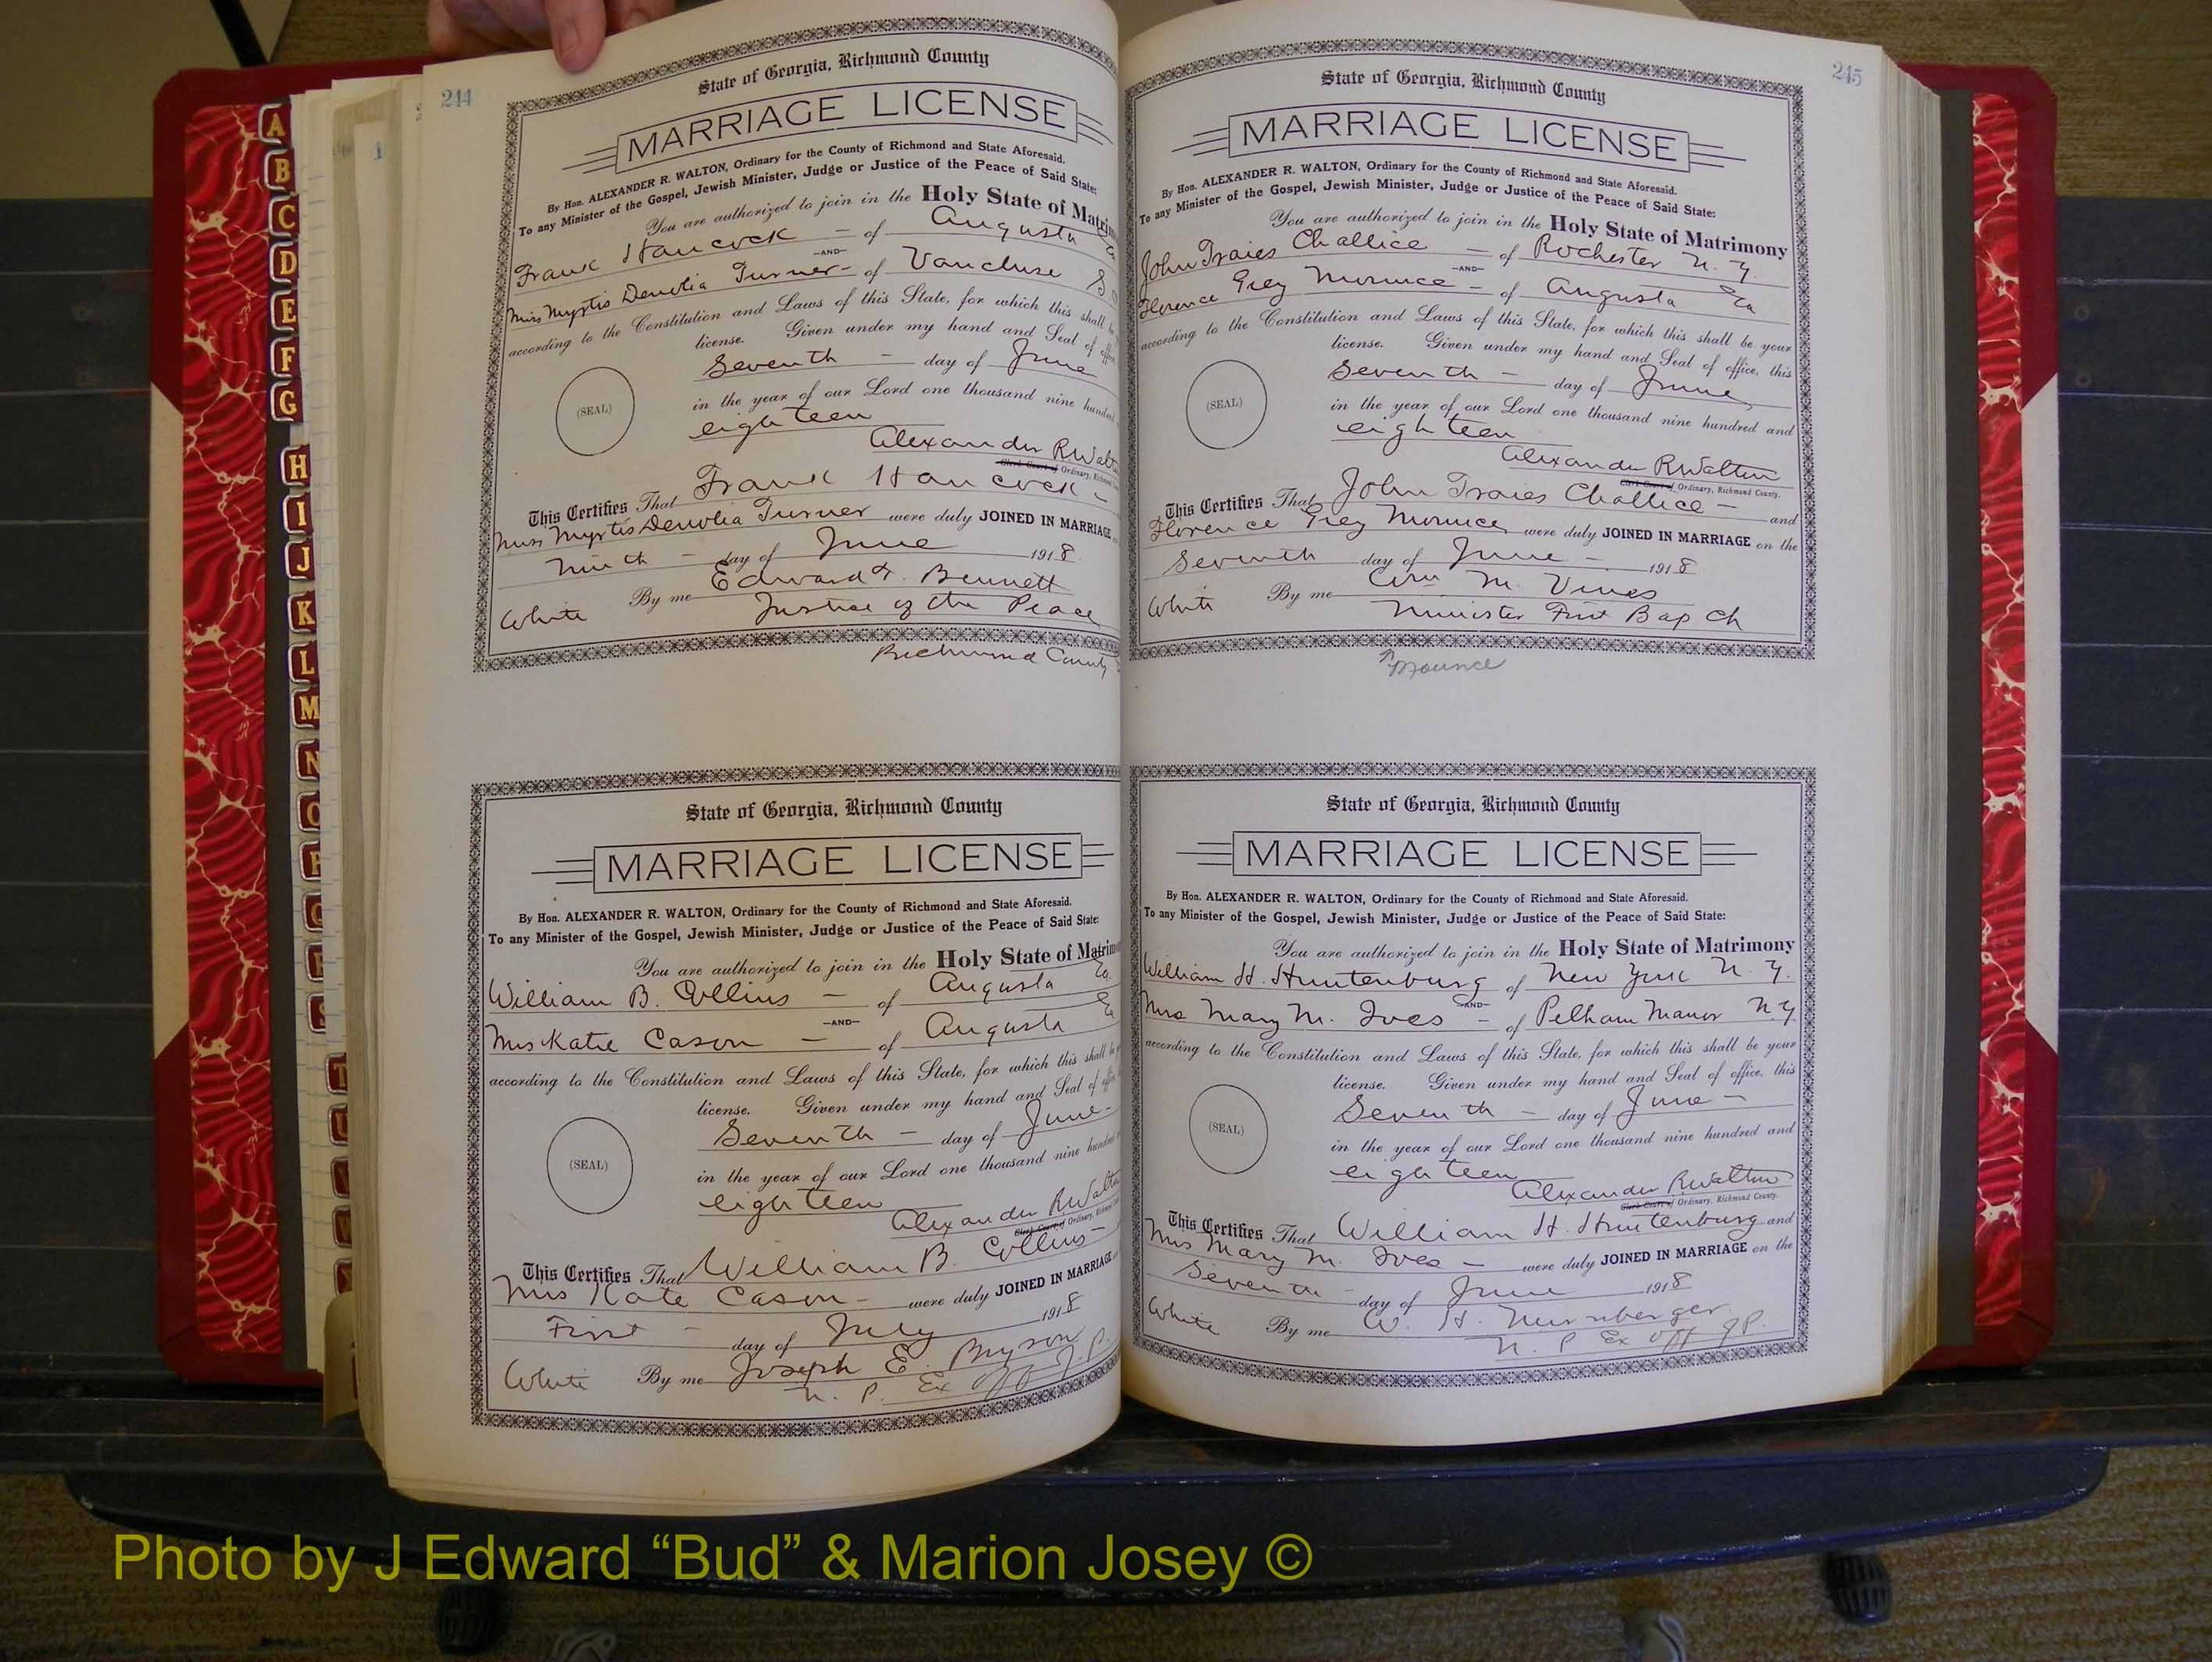 244
State of Georgia, Richmond County
MARRIAGE LICENSE
By Hon. ALEXANDER R. WALTON, Ordinary for the County of Richmond and State Aforesaid.
To any Minister of the Gospel, Jewish Minister, Judge or Justice of the Peace of Said State:
You are authorized to join in the Holy State of Matrim
Frank Hancock – of Augusta Ga
—AND—
Miss Myrtis Turner – of Vaucluse S C
according to the Constitution and Laws of this State, for which this shall be
license. Given under my hand and Seal of office
Seventh – day of June
(SEAL)
in the year of our Lord one thousand nine hundred
eighteen
Alexander R Walton
Clerk Court of Ordinary, Richmond
This Certifies That Frank Hancock –
Miss Myrtis Turner were duly JOINED IN MARRIAGE on
Ninth – day of June 1918
White By me Edward T. Bennett
Justice of the Peace
Richmond County
State of Georgia, Richmond County
MARRIAGE LICENSE
By Hon. ALEXANDER R. WALTON, Ordinary for the County of Richmond and State Aforesaid.
To any Minister of the Gospel, Jewish Minister, Judge or Justice of the Peace of Said State:
You are authorized to join in the Holy State of Matrim
William B. Collins – of Augusta Ga
—AND—
Mrs Katie Cason – of Augusta Ga
according to the Constitution and Laws of this State, for which this shall be
license. Given under my hand and Seal of office
Seventh – day of June –
(SEAL)
in the year of our Lord one thousand nine hundred
eighteen
Alexander R Walton
Clerk Court of Ordinary, Richmond
This Certifies That William B. Collins –
Mrs Kate Cason – were duly JOINED IN MARRIAGE on
First – day of July 1918
White By me Joseph E. Bryson
N. P. Ex Off J. P.
245
State of Georgia, Richmond County
MARRIAGE LICENSE
By Hon. ALEXANDER R. WALTON, Ordinary for the County of Richmond and State Aforesaid.
To any Minister of the Gospel, Jewish Minister, Judge or Justice of the Peace of Said State:
You are authorized to join in the Holy State of Matrimony
John Traies Challice – of Rochester N. Y.
—AND—
Florence Grey – of Augusta Ga
according to the Constitution and Laws of this State, for which this shall be your
license. Given under my hand and Seal of office, this
Seventh – day of June
(SEAL)
in the year of our Lord one thousand nine hundred and
eighteen
Alexander R Walton
Clerk Court of Ordinary, Richmond County.
This Certifies That John Traies Challice – and
Florence Grey were duly JOINED IN MARRIAGE on the
Seventh day of June – 1918
White By me Wm M. Vines
Minister First Bap Ch
Mounce
State of Georgia, Richmond County
MARRIAGE LICENSE
By Hon. ALEXANDER R. WALTON, Ordinary for the County of Richmond and State Aforesaid.
To any Minister of the Gospel, Jewish Minister, Judge or Justice of the Peace of Said State:
You are authorized to join in the Holy State of Matrimony
William H. Huntenburg of New York N. Y.
—AND—
Mrs Mary M. Ives – of Pelham Manor N.Y
according to the Constitution and Laws of this State, for which this shall be your
license. Given under my hand and Seal of office, this
Seventh – day of June –
(SEAL)
in the year of our Lord one thousand nine hundred and
eighteen
Alexander R Walton
Clerk Court of Ordinary, Richmond County.
This Certifies That William H. Huntenburg and
Mrs Mary M. Ives – were duly JOINED IN MARRIAGE on the
Seventh – day of June 1918
White By me W. H. Nurnberger
N. P Ex Off J P.
A
B
C
D
E
F
G
H
I
J
K
L
M
N
O
P
Q
R
S
T
U
V
W
Photo by J Edward “Bud” & Marion Josey ©